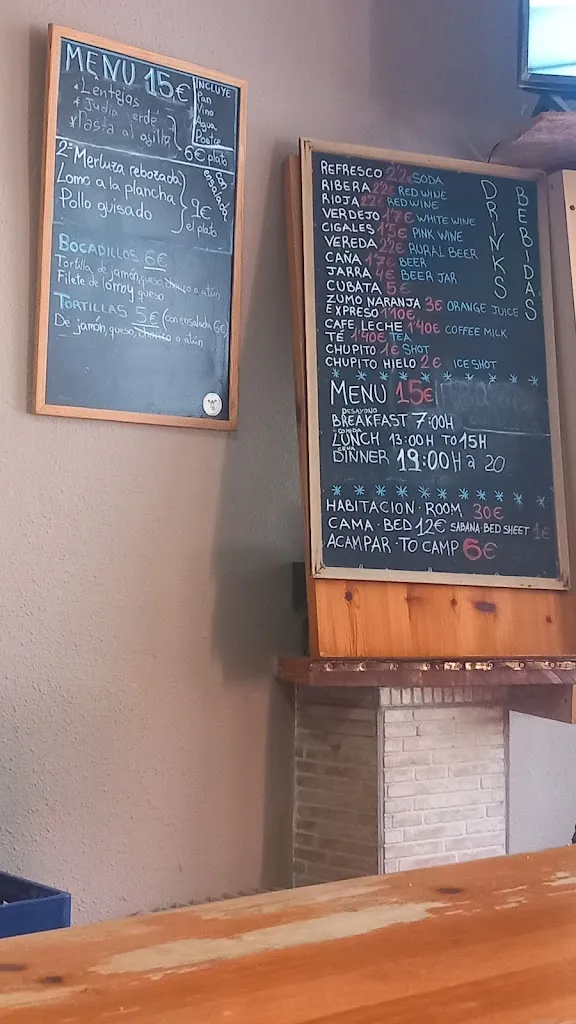 MENU 15€
INCLUYE
Pan
Vino
Agua
Postre
* Lentejas
* Judía verde
* Pasta al ajillo
6€ plato
2º Merluza rebozada
Lomo a la plancha
Pollo guisado
9€
el plato
con
ensalada
BOCADILLOS 6€
Tortilla, de jamón, queso, chorizo o atún
Filete de lomo y queso
TORTILLAS 5€ (con ensalada 6€)
De jamón, queso, chorizo o atún
REFRESCO 2'2€ SODA
RIBERA 2'2€ RED WINE
RIOJA 2'2€ RED WINE
VERDEJO 1'7€ WHITE WINE
CIGALES 1'5€ PINK WINE
VEREDA 2'2€ RURAL BEER
CAÑA 1'7€ BEER
JARRA 4€ BEER JAR
CUBATA 5€
ZUMO NARANJA 3€ ORANGE JUICE
EXPRESO 1'10€
CAFE LECHE 1'40€ COFFEE MILK
TÉ 1'40€ TEA
CHUPITO 1€ SHOT
CHUPITO HIELO 2€ ICE SHOT
DRINKS
BEBIDAS
MENU 15€
DESAYUNO
BREAKFAST 7:00H
COMIDA
LUNCH 13:00H TO 15H
CENA
DINNER 19:00H a 20
HABITACION · ROOM 30€
CAMA · BED 12€ SABANA · BED SHEET 1€
ACAMPAR · TO CAMP 6€